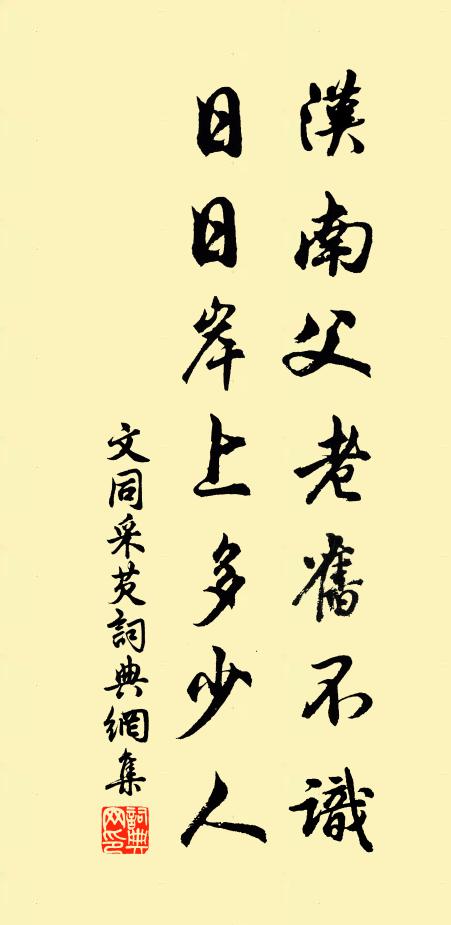 漢南父老舊不識
日日岸上多少人
文同采芡詞典網集
詞典網印